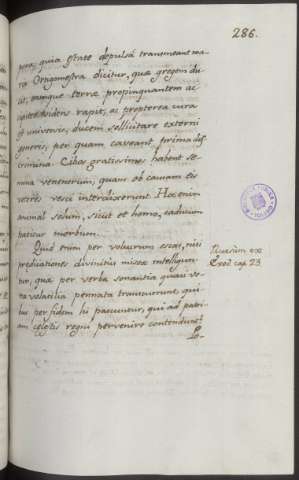 286.
pora, quia flatu depulsa transmeant ma-
ria Ortygometra dicitur, quæ gregem du-
cit, eamque terræ propinquantem ac-
cipiter videns rapit, ac propterea cura
est universis, ducem sollicitare externi
generis, per quam caveant prima dis-
crimina. Cibos gratissimos habent se-
mina venenorum, quam ob causam eas
veteres vesci interdixerunt. Hoc enim
animal solum, sicut et homo, caducum
patitur morbum.
Quid enim per volucrum escas, nisi
prædicationes divinitus missæ intelligun-
tur, quæ per verba sonantia quasi ve-
ra volatilia pennata transcurrunt, qui-
bus per fidem hi pascuntur, qui ad patri-
am cælestis regni pervenire contendunt?
Picarum ex
Exod. cap. 23.